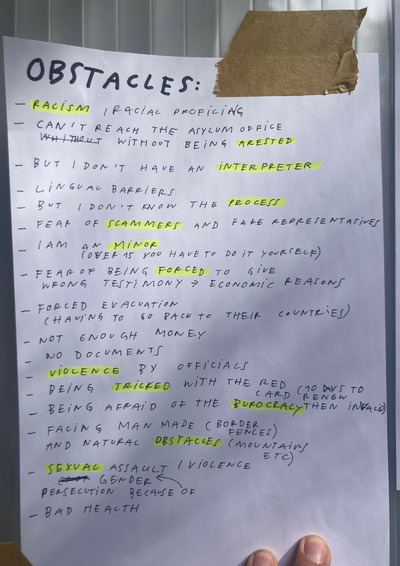 OBSTACLES:
– RACISM / RACIAL PROFICING
– CAN'T REACH THE ASYLUM OFFICE
WHITHOUT WITHOUT BEING ARESTED
– BUT I DON'T HAVE AN INTERPRETER
– LINGUAL BARRIERS
– BUT I DON'T KNOW THE PROCESS
– FEAR OF SCAMMERS AND FAKE REPRESENTATIVES
– I AM AN MINOR
(OVER 15 YOU HAVE TO DO IT YOURSELF)
– FEAR OF BEING FORCED TO GIVE
WRONG TESTIMONY → ECONOMIC REASONS
– FORCED EVACUATION
(HAVING TO GO BACK TO THEIR COUNTRIES)
– NOT ENOUGH MONEY
– NO DOCUMENTS
– VIOLENCE BY OFFICIALS
– BEING TRICKED WITH THE RED CARD (10 DAYS TO RENEW THEN INVALID)
– BEING AFRAID OF THE BUROCRACY
– FACING MAN MADE (BORDER FENCES)
AND NATURAL OBSTACLES (MOUNTAINS ETC)
– SEXUAL ASSAULT / VIOLENCE
GENDER
PERSECUTION BECAUSE OF
– BAD HEALTH